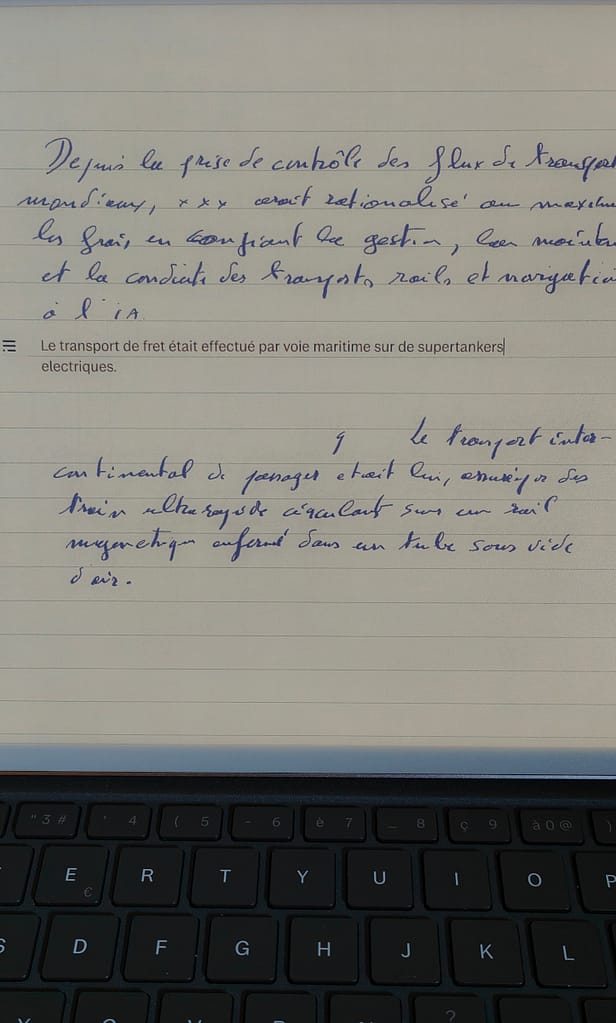 Depuis la prise de contrôle des flux de transport
mondiaux, xxx avait rationalisé au maximu
les frais en confiant la gestion, la mainten
et la conduite des transports rails et navigatio
à l'iA
Le transport de fret était effectué par voie maritime sur de supertankers
electriques.
le transport inter-
continental de passager etait lui, assuré par des
train ultra rapide circulant sur un rail
magnetique enfermé dans un tube sous vide
d'air.
" 3 # ' 4 ( 5 - 6 è 7 _ 8 ç 9 à 0 @ )
E € R T Y U I O P
S D F G H J K L
?